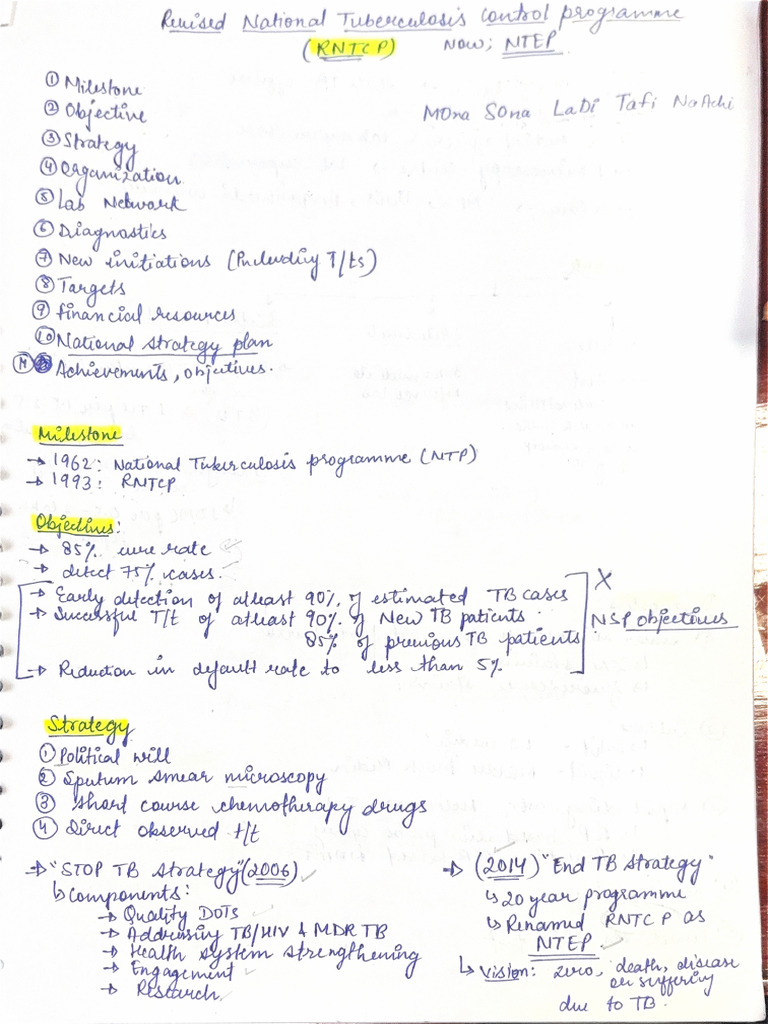 Revised National Tuberculosis Control programme
(RNTCP) Now; NTEP
① Milestone
② Objective
MOna SOna LaDi Tafi NaAchi
③ Strategy
④ Organization
⑤ Lab Network
⑥ Diagnostics
⑦ New initiations (Including T/ts)
⑧ Targets
⑨ financial resources
⑩ National strategy plan
⑪ Achievements, objectives.
Milestone
→ 1962: National Tuberculosis programme (NTP)
→ 1993: RNTCP
Objectives:
→ 85% cure rate
→ detect 75% cases.
→ Early detection of atleast 90% of estimated TB cases
→ Successful T/t of atleast 90% of New TB patients
85% of previous TB patients
→ Reduction in default rate to less than 5%
X
NSP objectives
Strategy
① Political will
② Sputum smear microscopy
③ Short course chemotherapy drugs
④ Direct observed t/t
→ "STOP TB Strategy" (2006)
↳ Components:
→ Quality DOTS
→ Addressing TB/HIV & MDR TB
→ Health system strengthening
→ Engagement
→ Research
→ (2014) "End TB Strategy"
↳ 20 year programme
↳ Renamed RNTCP as
NTEP
↳ Vision: zero, death, disease
or suffering
due to TB.